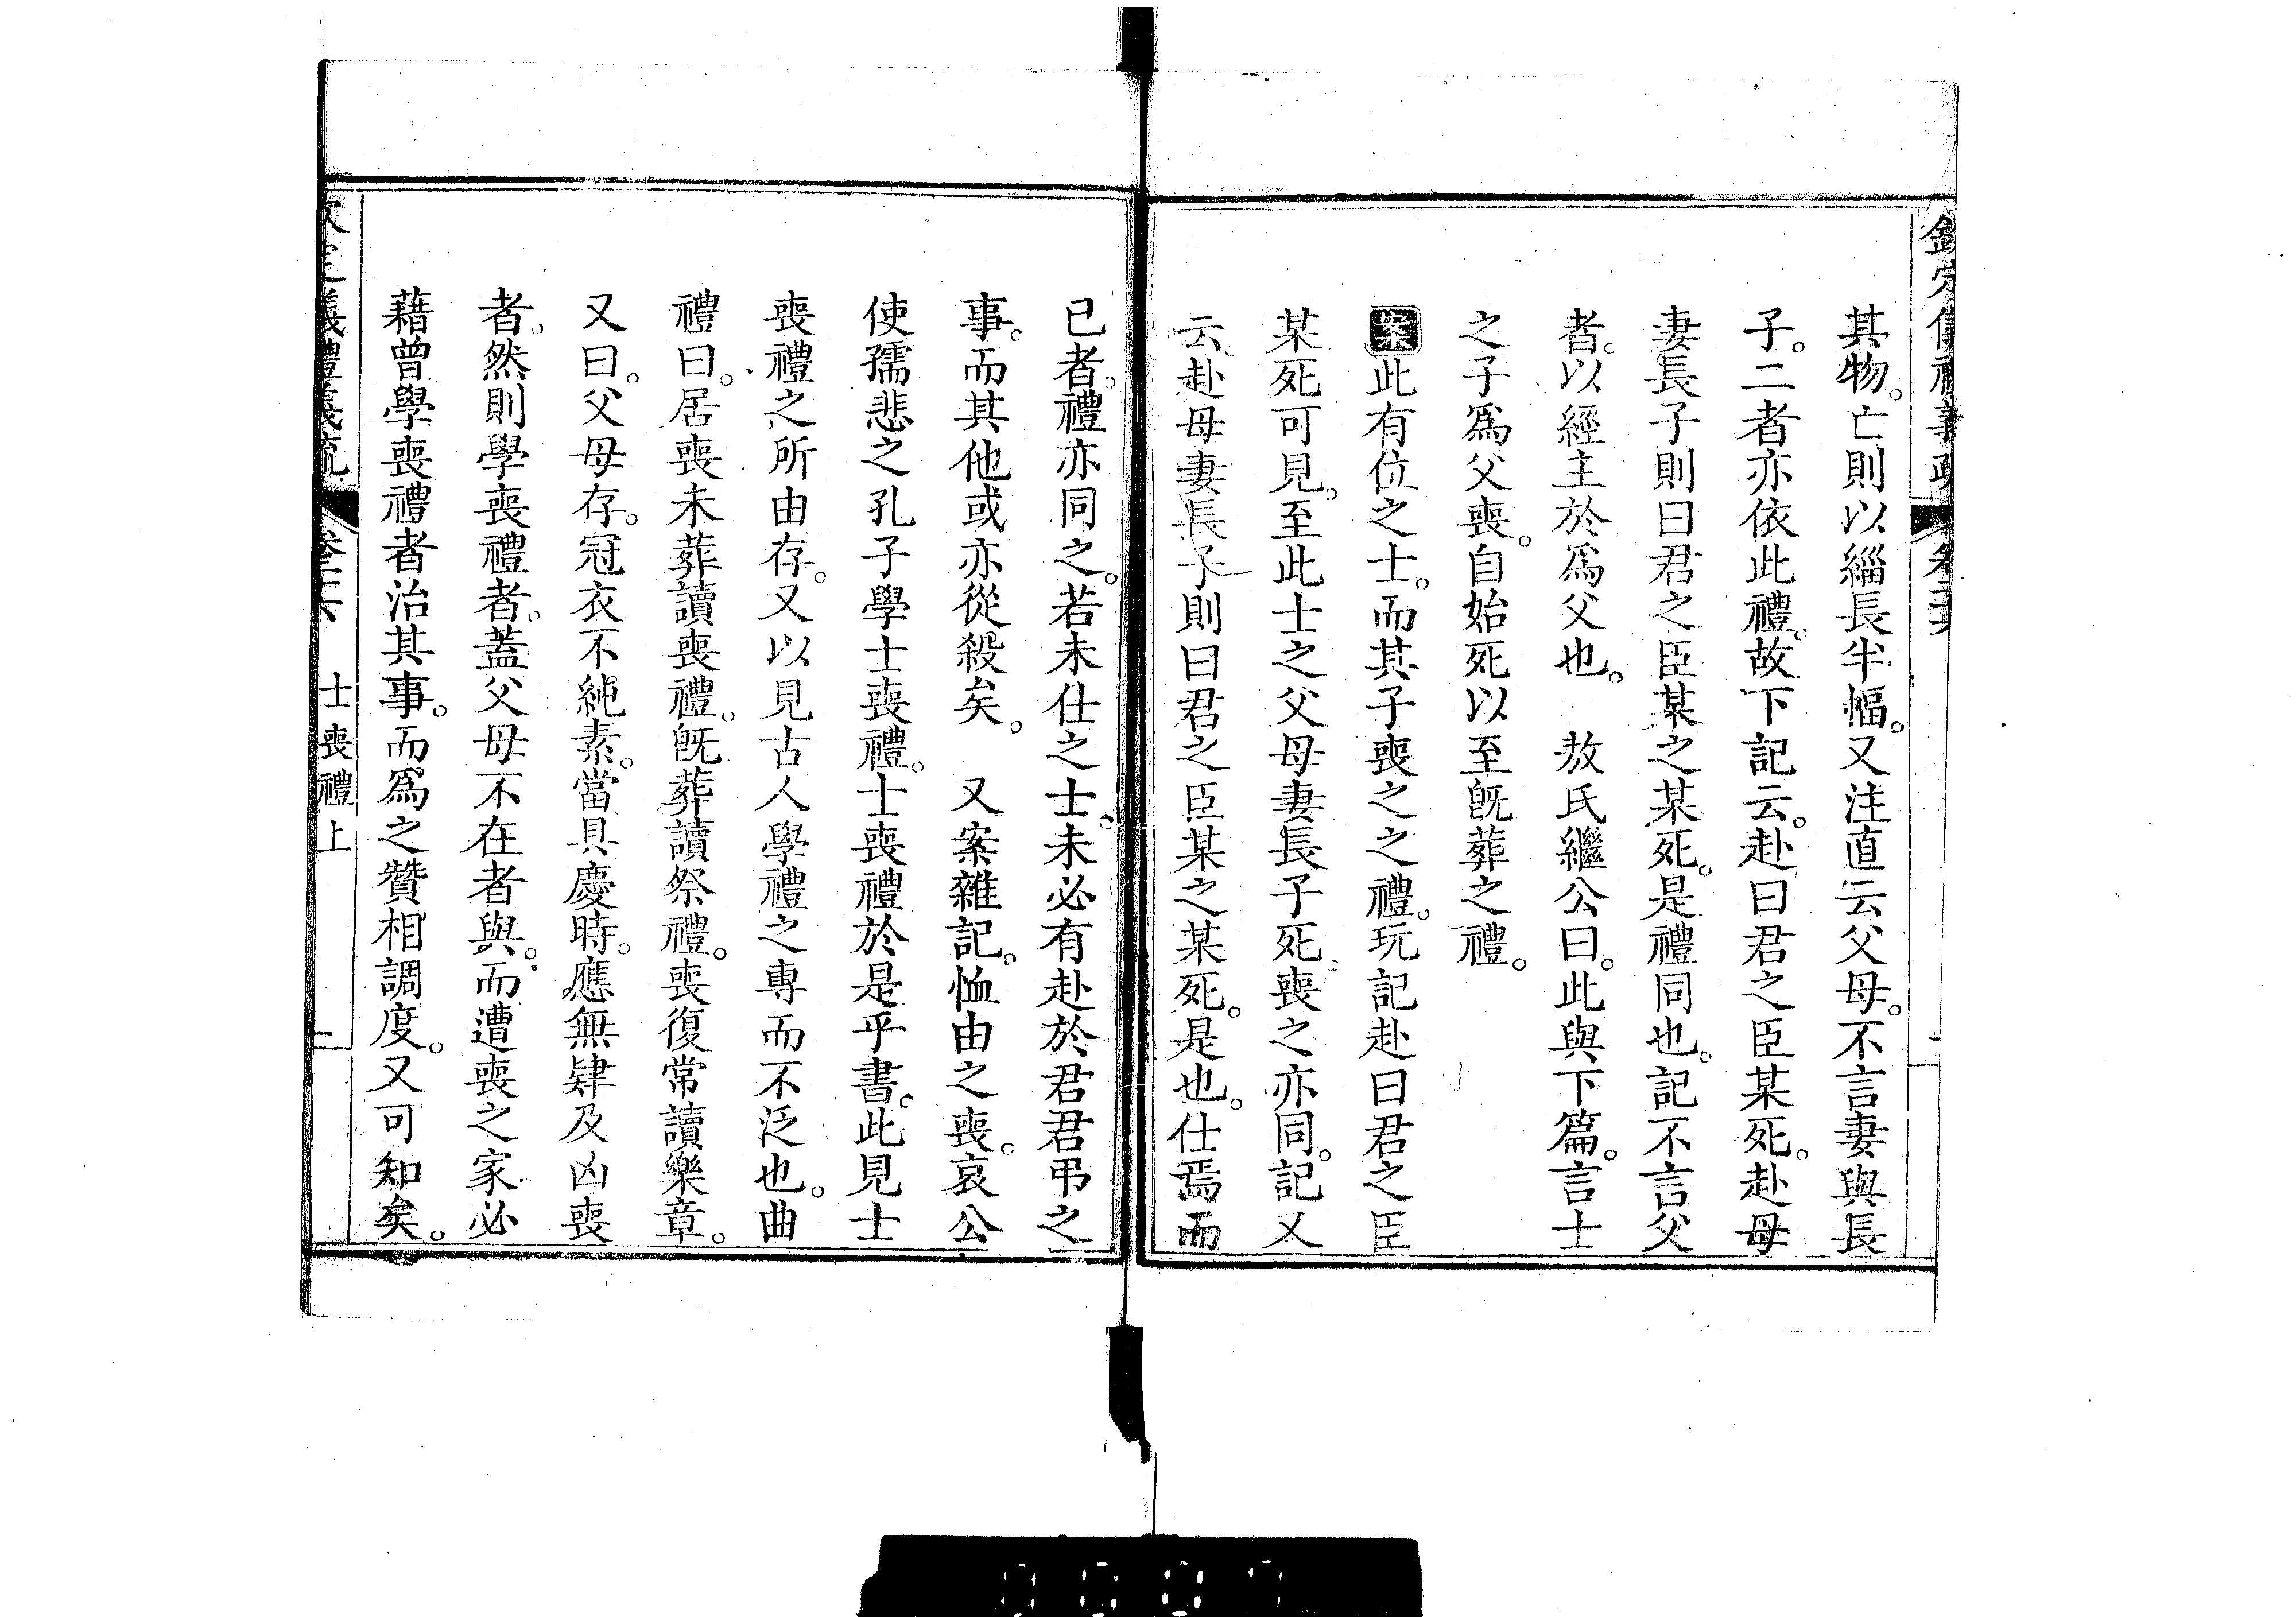 欽定儀禮義疏 卷二六
其物。亡則以緇長半幅。又注直云父母。不言妻與長
子。二者亦依此禮。故下記云。赴曰君之臣某死。赴母
妻長子則曰君之臣某之某死。是禮同也。記不言父
者。以經主於爲父也。　敖氏繼公曰。此與下篇。言士
之子爲父喪。自始死以至旣葬之禮。
案此有位之士。而其子喪之之禮。玩記赴曰君之臣
某死可見。至此士之父母妻長子死。喪之亦同。記又
云。赴母妻長子則曰君之臣某之某死。是也。仕焉而
已者。禮亦同之。若未仕之士。未必有赴於君君弔之
事。而其他或亦從殺矣。　又案雜記。恤由之喪。哀公
使孺悲之孔子學士喪禮。士喪禮於是乎書。此見士
喪禮之所由存。又以見古人學禮之專而不泛也。曲
禮曰。居喪未葬讀喪禮。旣葬讀祭禮。喪復常讀樂章。
又曰。父母存。冠衣不純素。當具慶時。應無肄及凶喪
者。然則學喪禮者。蓋父母不在者與。而遭喪之家必
藉曾學喪禮者治其事。而爲之贊相調度。又可知矣。
欽定儀禮義疏 卷二六 士喪禮上